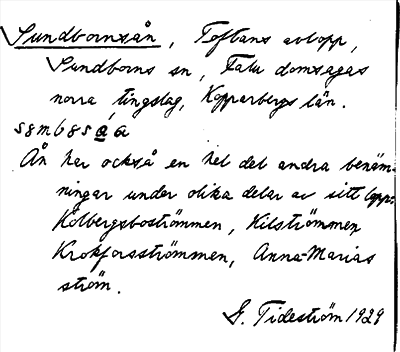 Sundbornsån, Toftans avlopp,
Sundborns sn, Falu domsagas
norra tingslag, Kopparbergs län.
Ån har också en hel del andra benäm-
ningar under olika delar av sitt lopp:
Kolbergsboströmmen, Kilströmmen
Krokforsströmmen, Anna-Marias
ström.
G. Tideström 1929